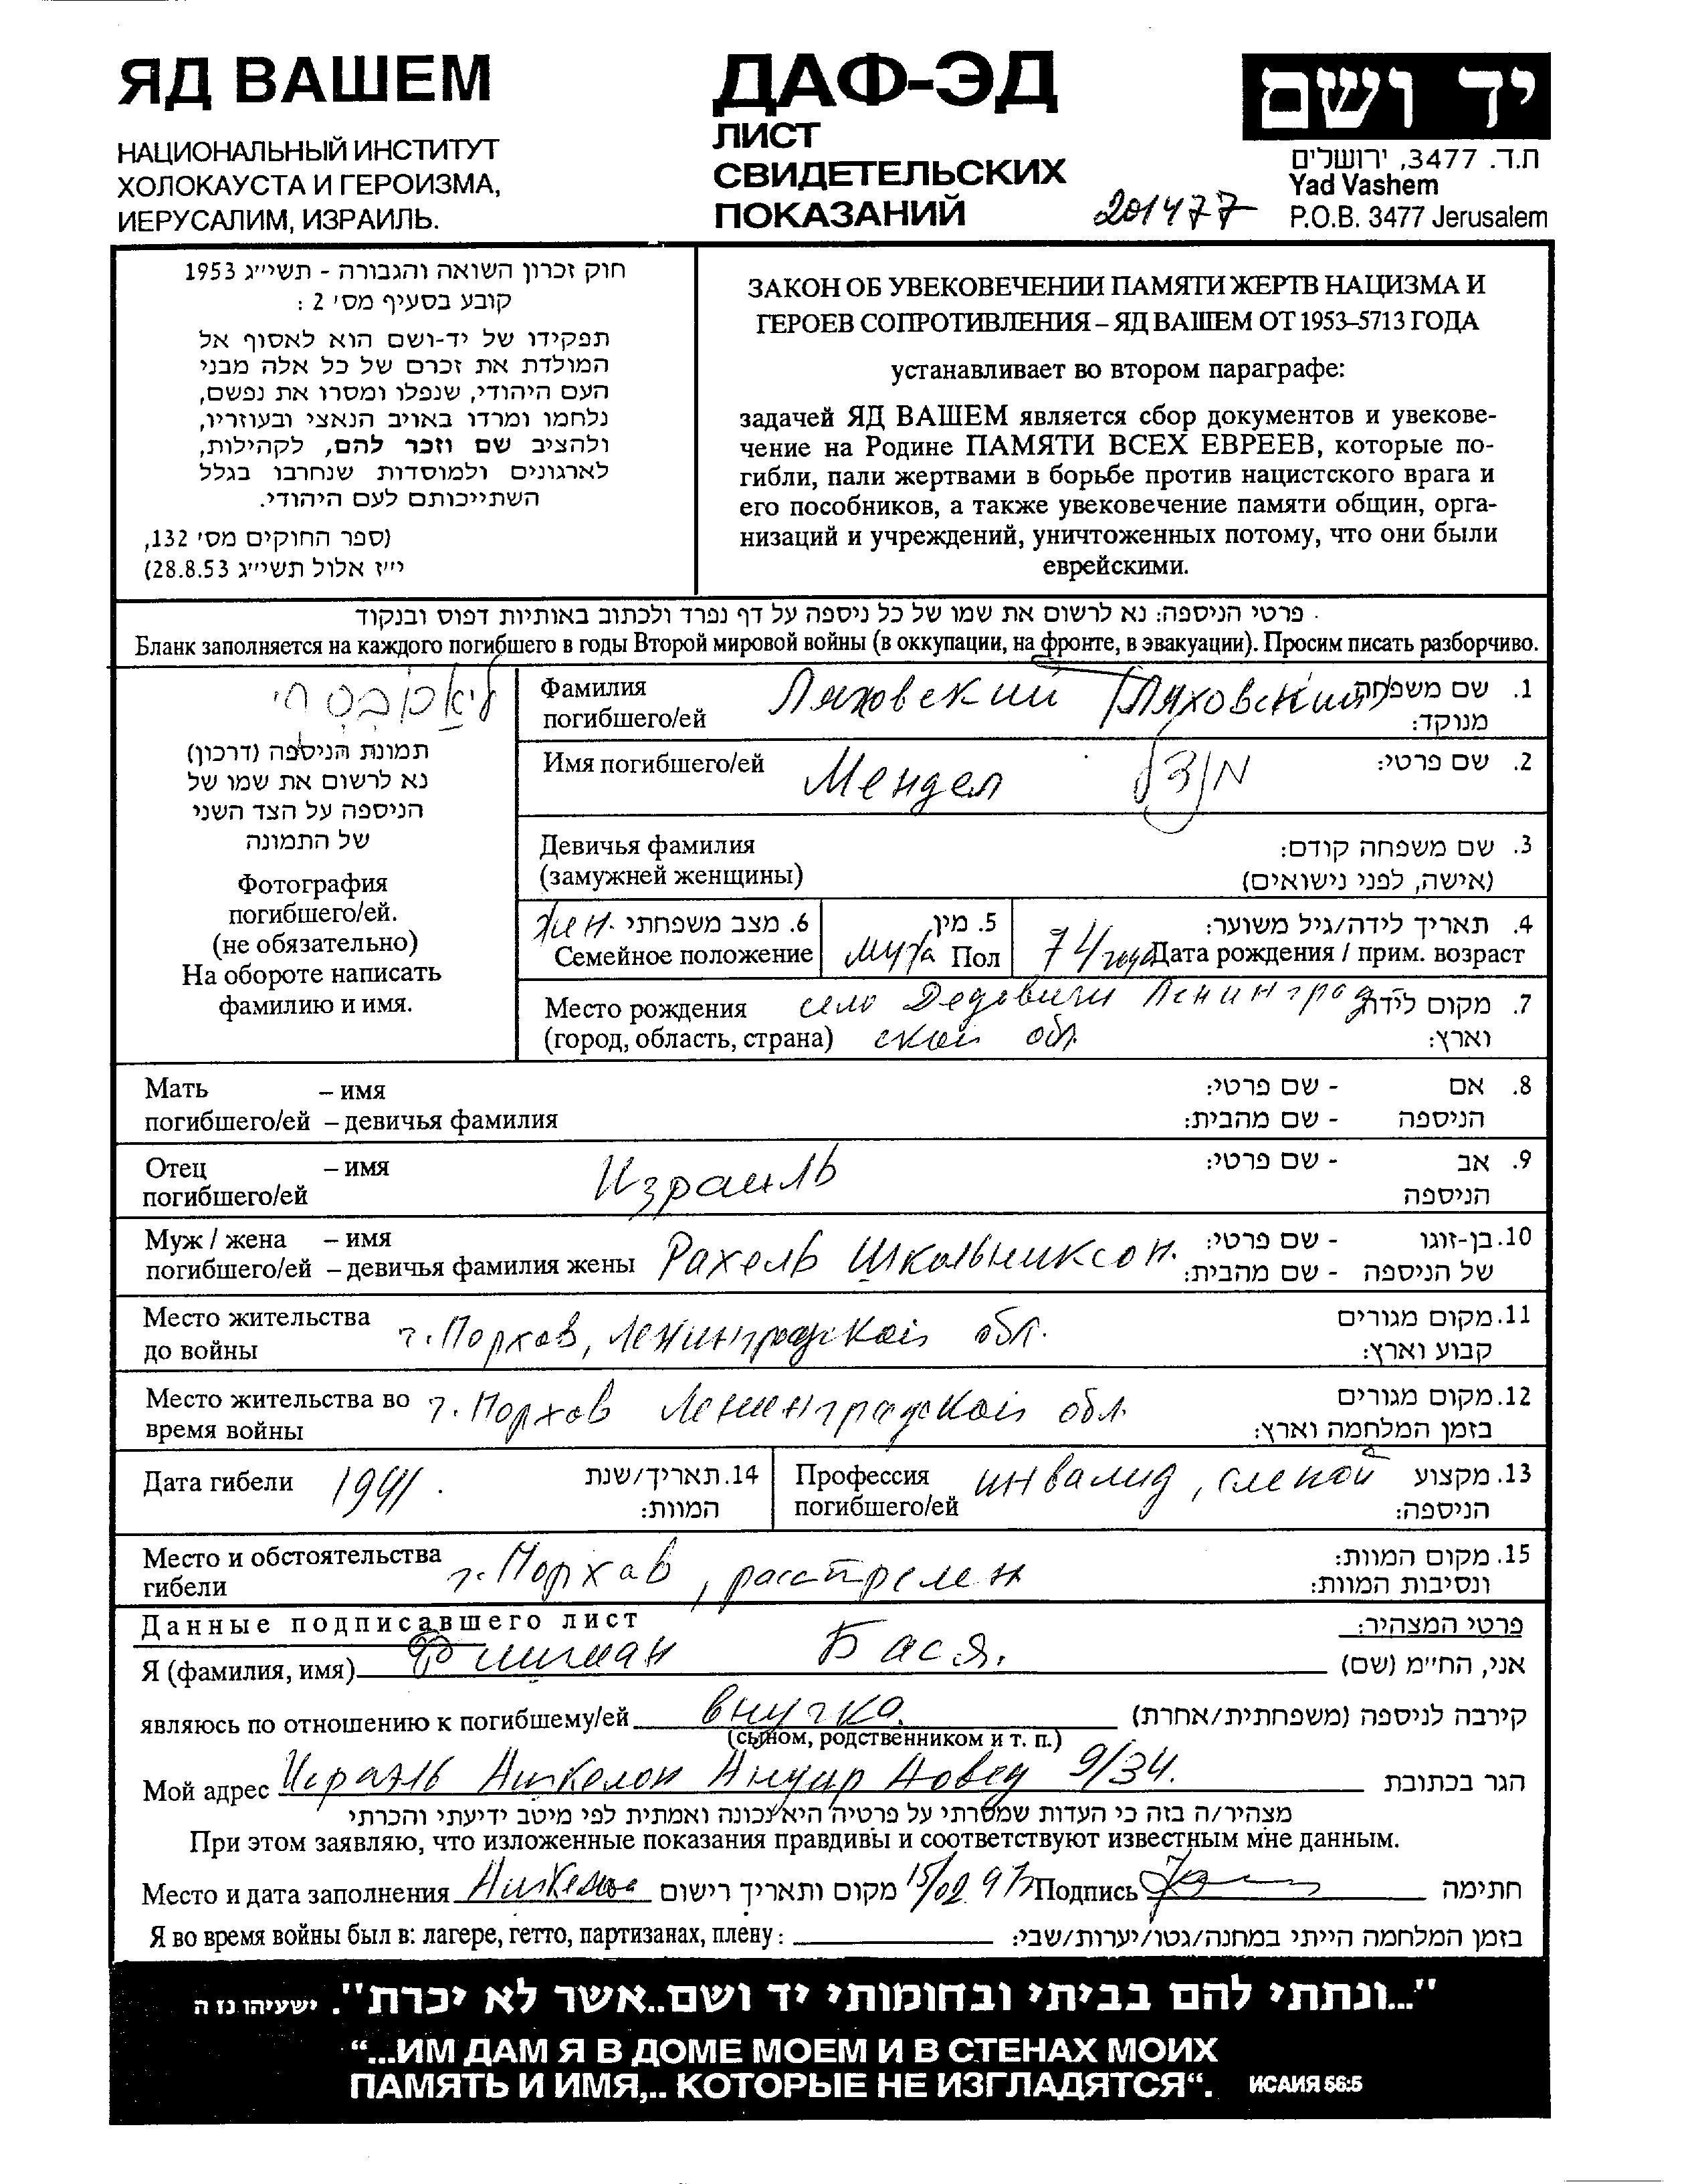 ЯД ВАШЕМ
НАЦИОНАЛЬНЫЙ ИНСТИТУТ
ХОЛОКАУСТА И ГЕРОИЗМА,
ИЕРУСАЛИМ, ИЗРАИЛЬ.
ДАФ-ЭД
ЛИСТ
СВИДЕТЕЛЬСКИХ
ПОКАЗАНИЙ
201477
יד ושם
ת.ד. 3477, ירושלים
Yad Vashem
P.O.B. 3477 Jerusalem
חוק זכרון השואה והגבורה - תשי״ג 1953
קובע בסעיף מס׳ 2 :
תפקידו של יד-ושם הוא לאסוף אל
המולדת את זכרם של כל אלה מבני
העם היהודי, שנפלו ומסרו את נפשם,
נלחמו ומרדו באויב הנאצי ובעוזריו,
ולהציב שם וזכר להם, לקהילות,
לארגונים ולמוסדות שנחרבו בגלל
השתייכותם לעם היהודי.
(ספר החוקים מס׳ 132,
י״ז אלול תשי״ג 28.8.53)
ЗАКОН ОБ УВЕКОВЕЧЕНИИ ПАМЯТИ ЖЕРТВ НАЦИЗМА И
ГЕРОЕВ СОПРОТИВЛЕНИЯ – ЯД ВАШЕМ ОТ 1953–5713 ГОДА
устанавливает во втором параграфе:
задачей ЯД ВАШЕМ является сбор документов и увекове-
чение на Родине ПАМЯТИ ВСЕХ ЕВРЕЕВ, которые по-
гибли, пали жертвами в борьбе против нацистского врага и
его пособников, а также увековечение памяти общин, орга-
низаций и учреждений, уничтоженных потому, что они были
еврейскими.
פרטי הניספה: נא לרשום את שמו של כל ניספה על דף נפרד ולכתוב באותיות דפוס ובנקוד .
Бланк заполняется на каждого погибшего в годы Второй мировой войны (в оккупации, на фронте, в эвакуации). Просим писать разборчиво.
תמונת הניספה (דרכון)
נא לרשום את שמו של
הניספה על הצד השני
של התמונה
Фотография
погибшего/ей.
(не обязательно)
На обороте написать
фамилию и имя.
Фамилия Ляховский (Ляховский) 1. שם משפחה
погибшего/ей מנוקד:
Имя погибшего/ей Мендел מנדל 2. שם פרטי:
Девичья фамилия 3. שם משפחה קודם:
(замужней женщины) (אישה, לפני נישואים)
жен. 6. מצב משפחתי
Семейное положение
5. מין
муж Пол
4. תאריך לידה/גיל משוער:
74 года Дата рождения / прим. возраст
Место рождения село Дедовичи Ленинград 7. מקום לידה
(город, область, страна) ской обл. וארץ:
Мать – имя - שם פרטי: 8. אם
погибшего/ей – девичья фамилия - שם מהבית: הניספה
Отец – имя Израиль - שם פרטי: 9. אב
погибшего/ей הניספה
Муж / жена – имя - שם פרטי: 10. בן-זוגו
погибшего/ей – девичья фамилия жены Рахель Школьниксон. - שם מהבית: של הניספה
Место жительства г. Порхов, Ленинградской обл. 11. מקום מגורים
до войны קבוע וארץ:
Место жительства во г. Порхов Ленинградской обл. 12. מקום מגורים
время войны בזמן המלחמה וארץ:
Дата гибели 1941. 14. תאריך/שנת
המוות:
Профессия инвалид, слепой 13. מקצוע
погибшего/ей הניספה:
Место и обстоятельства г. Порхав, расстрелен 15. מקום המוות:
гибели ונסיבות המוות:
Данные подписавшего лист פרטי המצהיר:
Я (фамилия, имя) Фишман Бася. אני, הח״מ (שם)
являюсь по отношению к погибшему/ей внучка. קירבה לניספה (משפחתית/אחרת)
(сыном, родственником и т. п.)
Мой адрес Исраэль Ашкелон Ануар Аовед 9/34. הגר בכתובת
מצהיר/ה בזה כי העדות שמסרתי על פרטיה היא נכונה ואמתית לפי מיטב ידיעתי והכרתי
При этом заявляю, что изложенные показания правдивы и соответствуют известным мне данным.
Место и дата заполнения Ашкелон מקום ותאריך רישום 15/02 97 Подпись חתימה
Я во время войны был в: лагере, гетто, партизанах, плену: בזמן המלחמה הייתי במחנה/גטו/יערות/שבי:
"...ונתתי להם בביתי ובחומותי יד ושם..אשר לא יכרת". ישעיהו נז ה
“...ИМ ДАМ Я В ДОМЕ МОЕМ И В СТЕНАХ МОИХ
ПАМЯТЬ И ИМЯ,.. КОТОРЫЕ НЕ ИЗГЛАДЯТСЯ“. ИСАИЯ 56:5